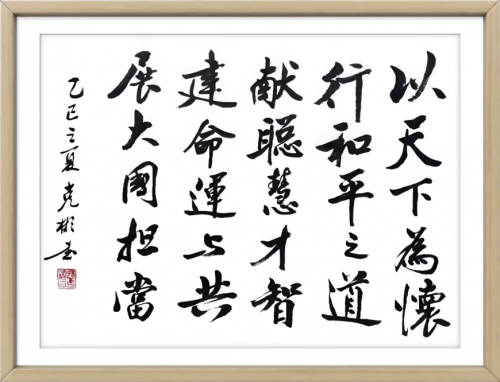 以天下為懷
行和平之道
献聪慧才智
建命運与共
展大國担當
乙巳之夏克彬书